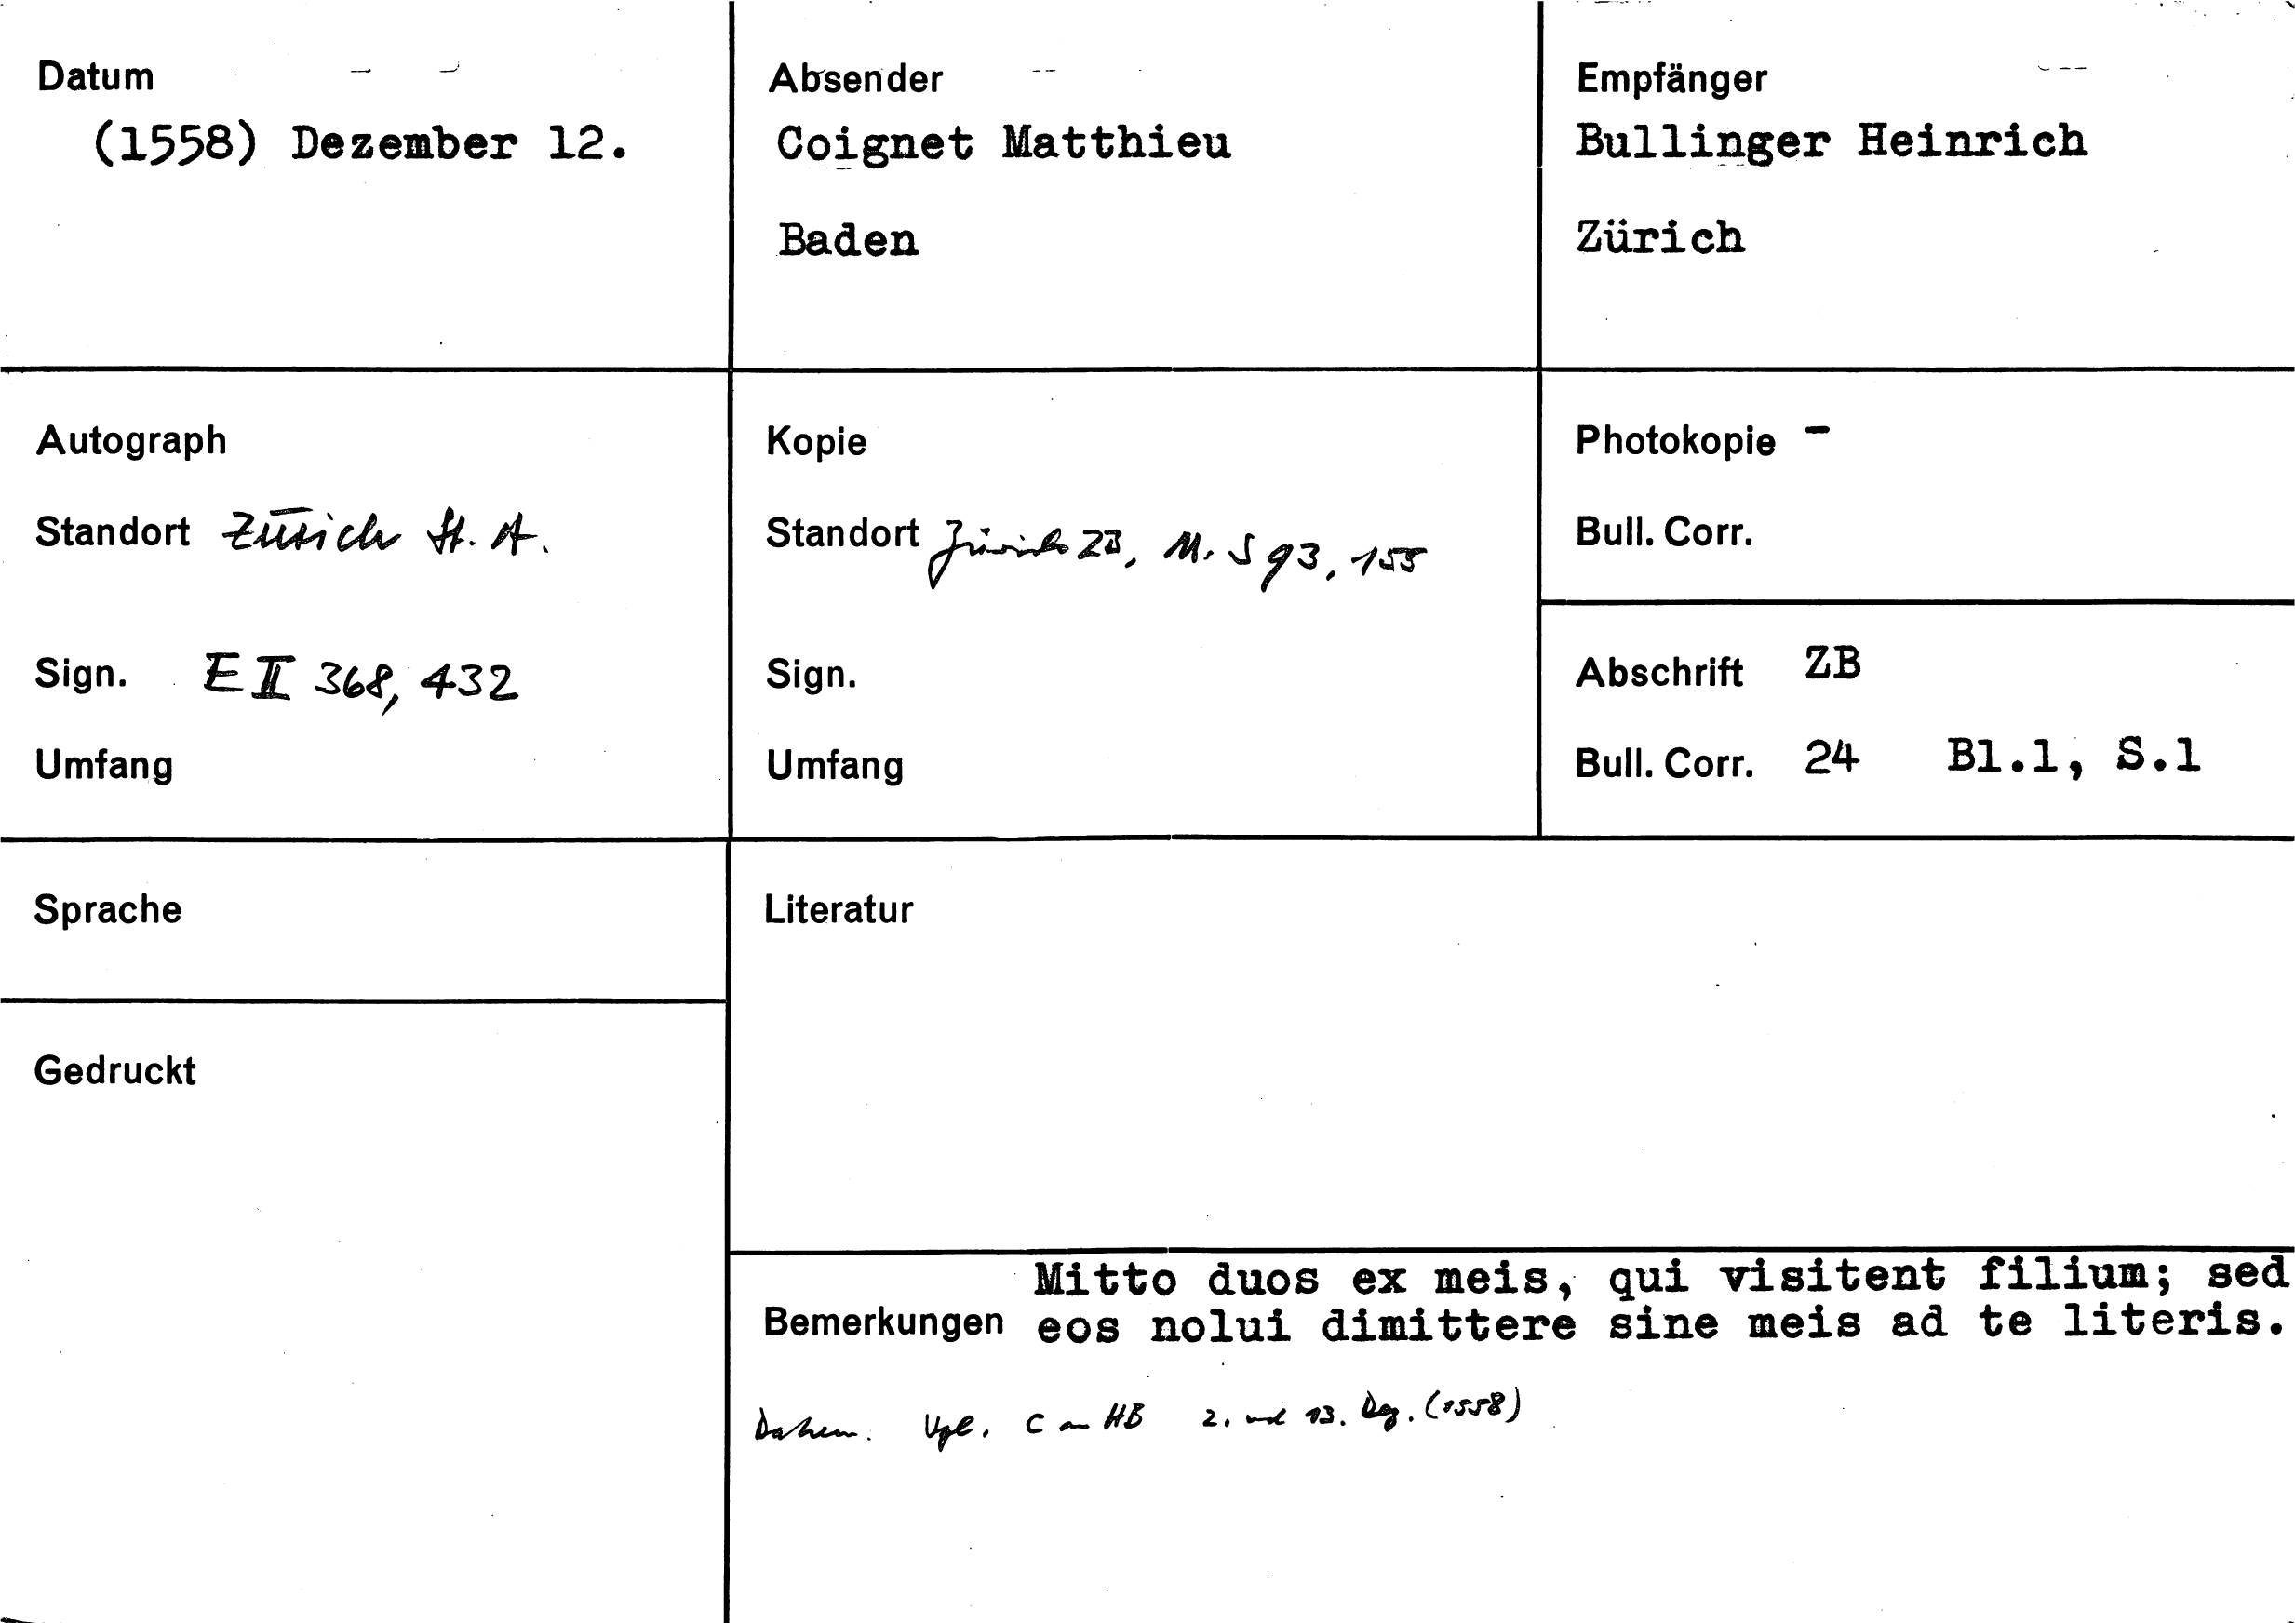 Datum
(1558) Dezember 12.
Absender
Coignet Matthieu
Baden
Empfänger
Bullinger Heinrich
Zürich
Autograph
Standort Zürich St. A.
Sign. E II 368, 432
Umfang
Kopie
Standort Zürich ZB, M. S 93, 155
Sign.
Umfang
Photokopie -
Bull. Corr.
Abschrift ZB
Bull. Corr. 24 Bl.1, S.1
Sprache
Gedruckt
Literatur
Bemerkungen
Mitto duos ex meis, qui visitent filium; sed
eos nolui dimittere sine meis ad te literis.
Datum. Vgl. C an HB 2. und 13. Dez. (1558)